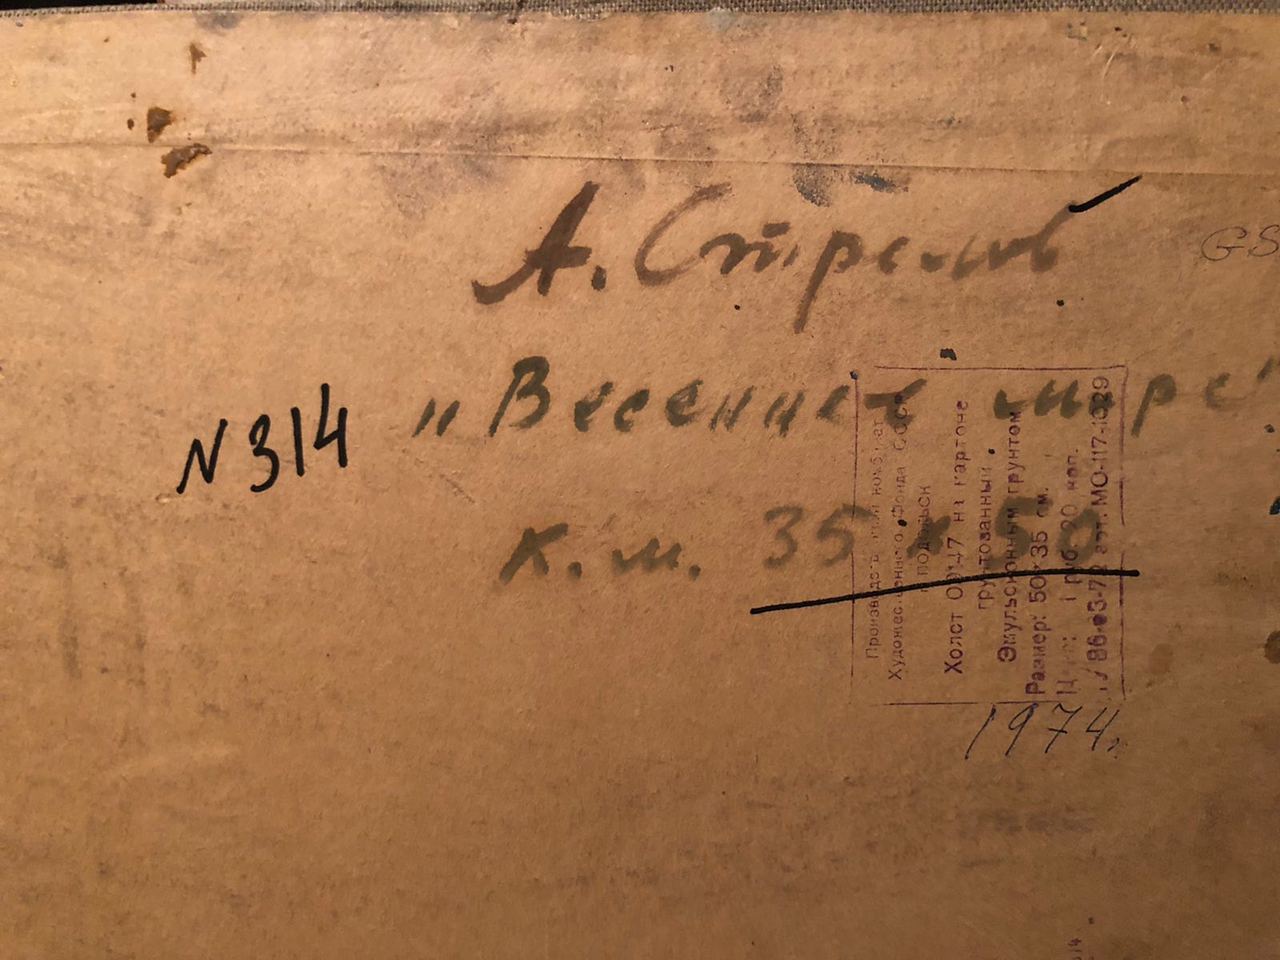 А. Стрелов
GS
„Весеннее море"
N 314
к.м. 35 x 50
Производственный комбинат
Художественного фонда СССР
г. Подольск
Холст 00147 на картоне
грунтованный
Эмульсионным грунтом
Размер: 50×35 см.
Цена: 1 руб. 20 коп.
арт. МО-117-1029
1974.